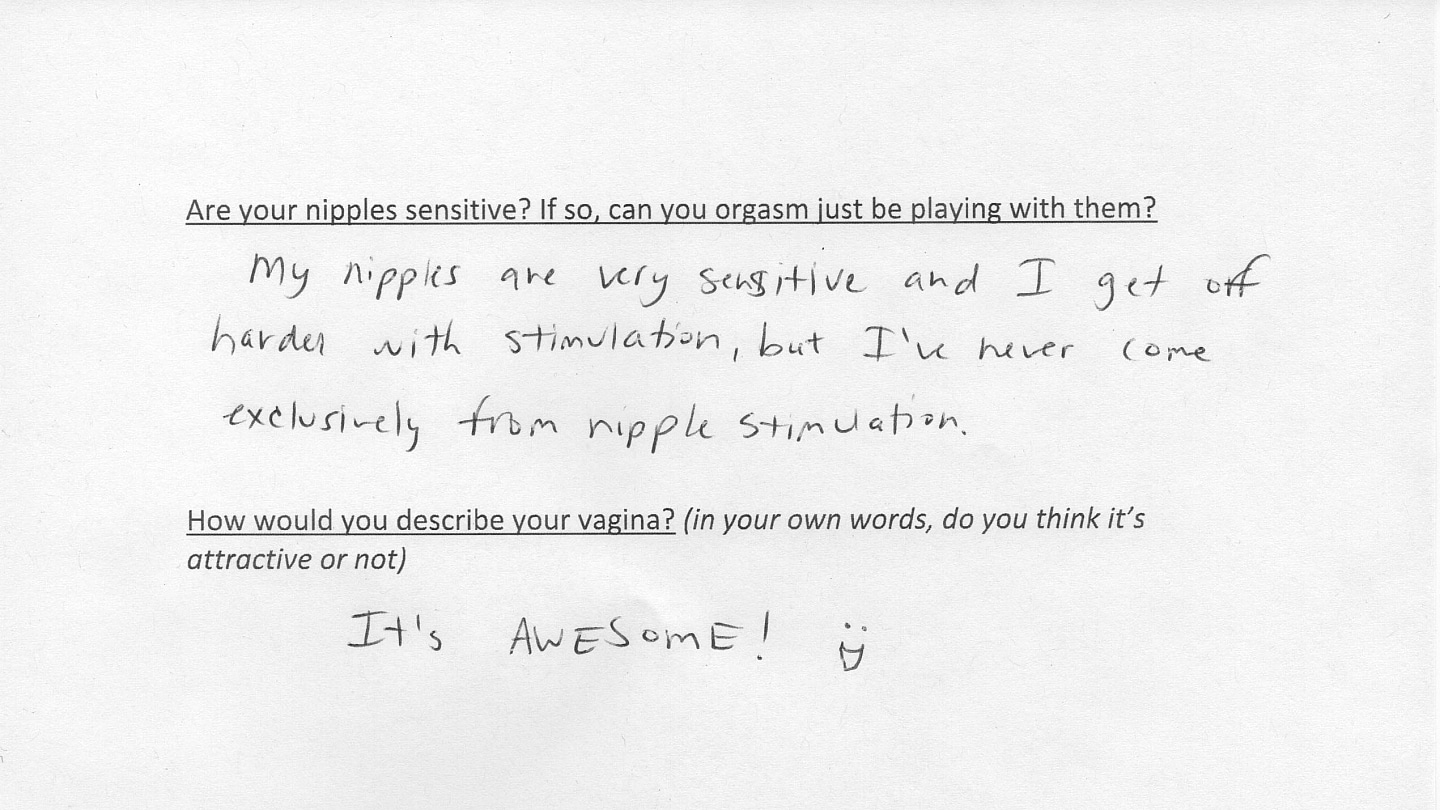 Are your nipples sensitive? If so, can you orgasm just be playing with them?
My nipples are very sensitive and I get off
harder with stimulation, but I've never come
exclusively from nipple stimulation.
How would you describe your vagina? (in your own words, do you think it's
attractive or not)
It's AWESOME! :D